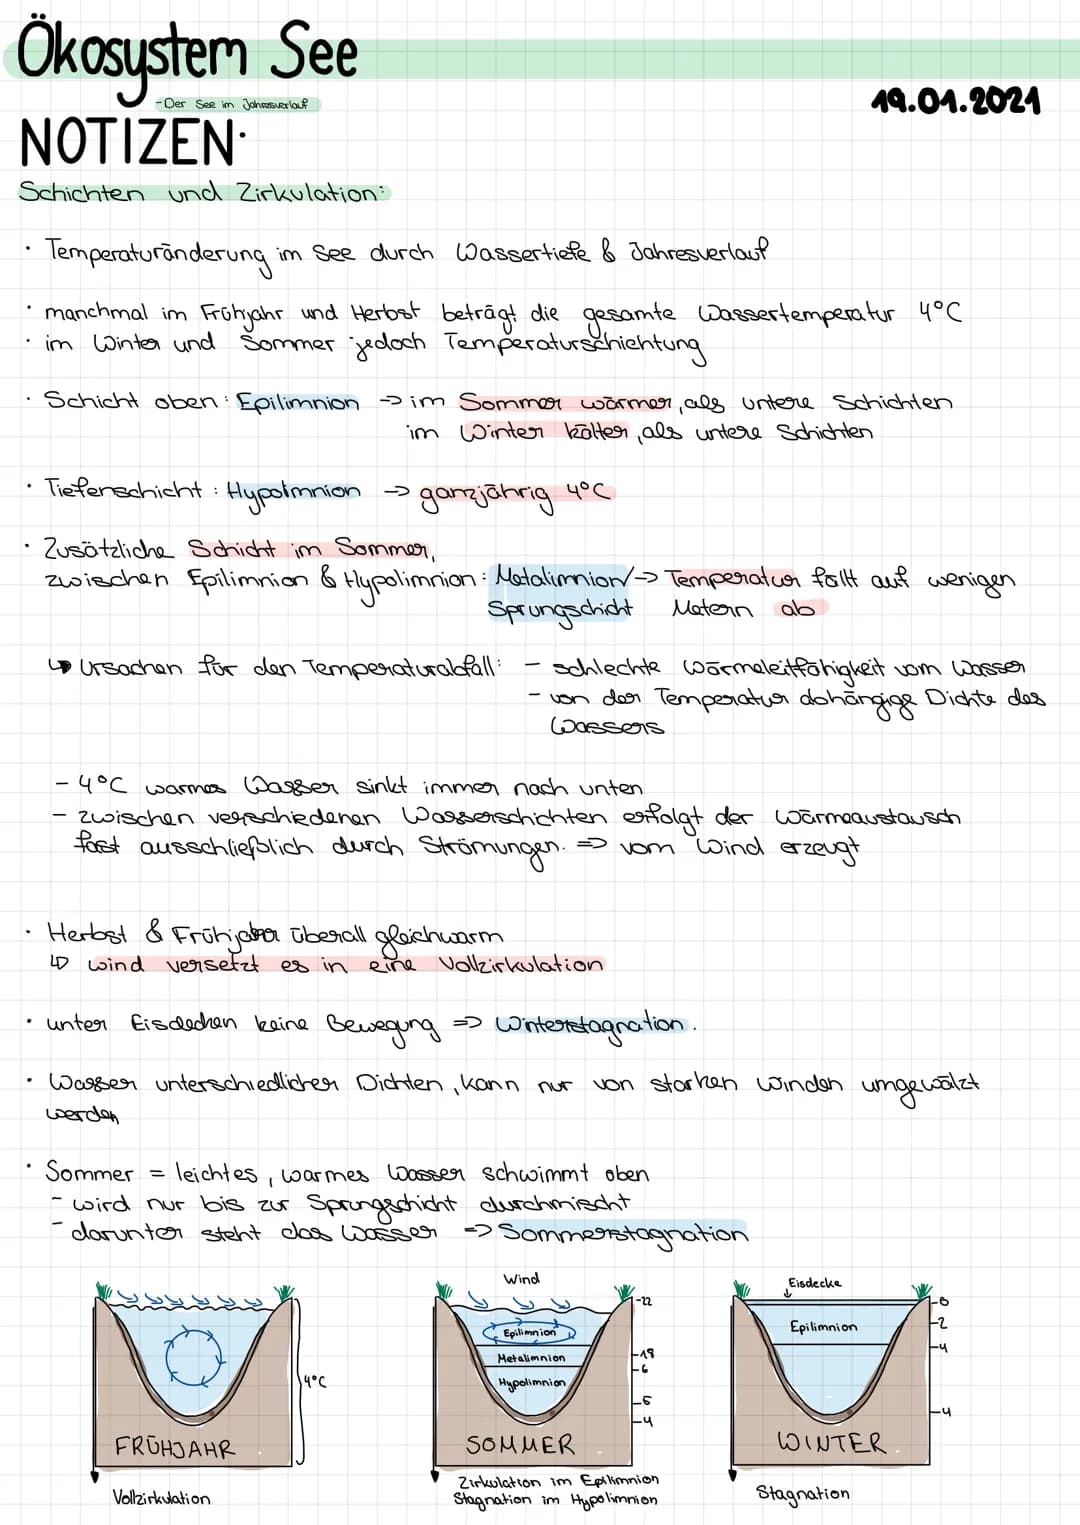 Ökosystem See
-Der See im Jahresverlauf
19.01.2021
NOTIZEN:
Schichten und Zirkulation:
· Temperaturänderung im See durch Wassertiefe & Jahresverlauf
· manchmal im Frühjahr und Herbst beträgt die gesamte Wassertemperatur 4°C
· im Winter und Sommer jedoch Temperaturschichtung
· Schicht oben: Epilimnion -> im Sommer wärmer, als untere Schichten
im Winter kälter, als untere Schichten
· Tiefenschicht: Hypolmnion -> ganzjährig 4°C
· Zusätzliche Schicht im Sommer,
zwischen Epilimnion & Hypolimnion: Metalimnion/-> Temperatur fällt auf wenigen
Sprungschicht Metern ab
↳ Ursachen für den Temperaturabfall: - schlechte Wärmeleitfähigkeit vom Wasser
- von der Temperatur abhängige Dichte des
Wassers
- 4°C warmes Wasser sinkt immer nach unten
- zwischen verschiedenen Wasserschichten erfolgt der Wärmeaustausch
fast ausschließlich durch Strömungen. => vom Wind erzeugt
· Herbst & Frühjahr überall gleichwarm
↳ wind versetzt es in eine Vollzirkulation
· unter Eisdecken keine Bewegung => Winterstagnation.
· Wasser unterschiedlicher Dichten, kann nur von starken winden umgewälzt
werden
· Sommer = leichtes, warmes Wasser schwimmt oben
- wird nur bis zur Sprungschicht durchmischt
- darunter steht das Wasser => Sommerstagnation
4°C
FRÜHJAHR
Vollzirkulation
Wind
Epilimnion
Metalimnion
Hypolimnion
-22
-18
-6
-5
-4
SOMMER
Zirkulation im Epilimnion
Stagnation im Hypolimnion
Eisdecke
Epilimnion
-0
-2
-4
-4
WINTER
Stagnation